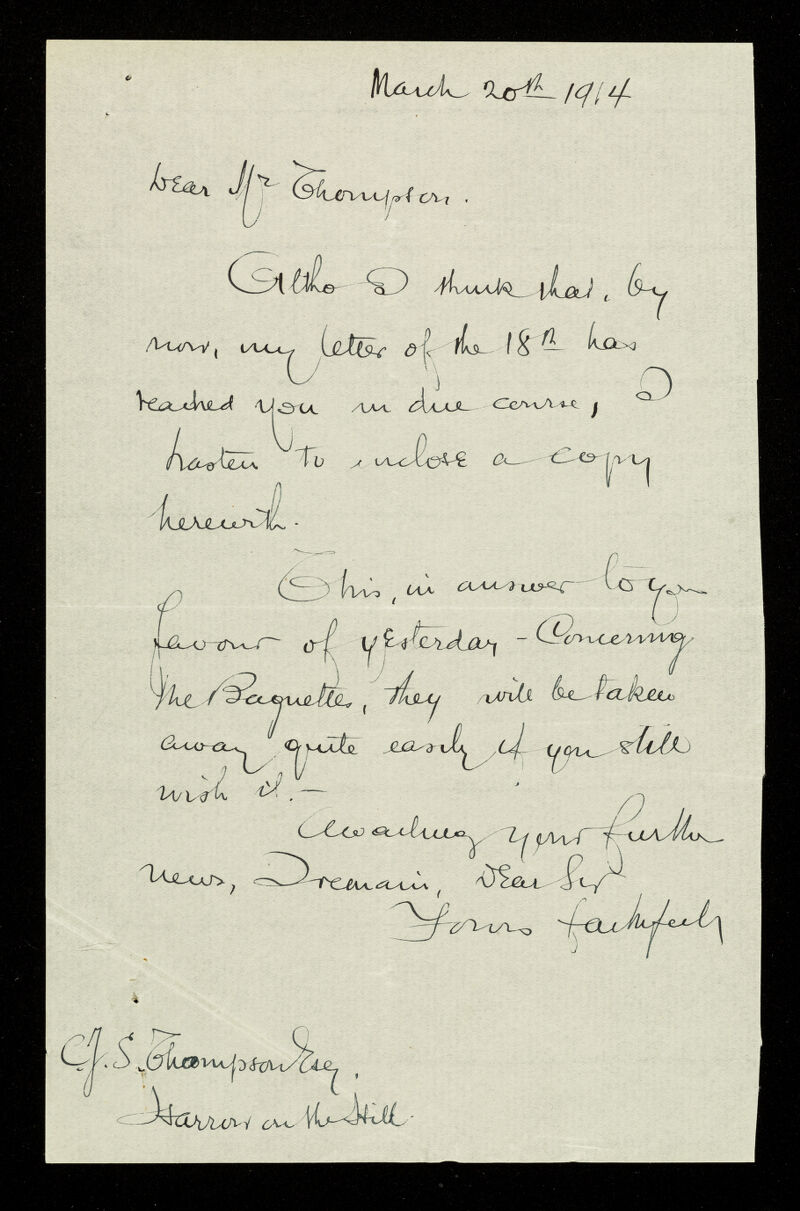 March 20th 1914
Dear Mr Thompson.
Altho I think that, by
now, my letter of the 18th has
reached you in due course, I
hasten to inclose a copy
herewith.
This, in answer to your
favour of yesterday - Concerning
the Baguettes, they will be taken
away quite easily if you still
wish it. -
Awaiting your further
news, I remain, Dear Sir
Yours faithfully
C.J.S. Thompson Esq.
Harrow on the Hill.